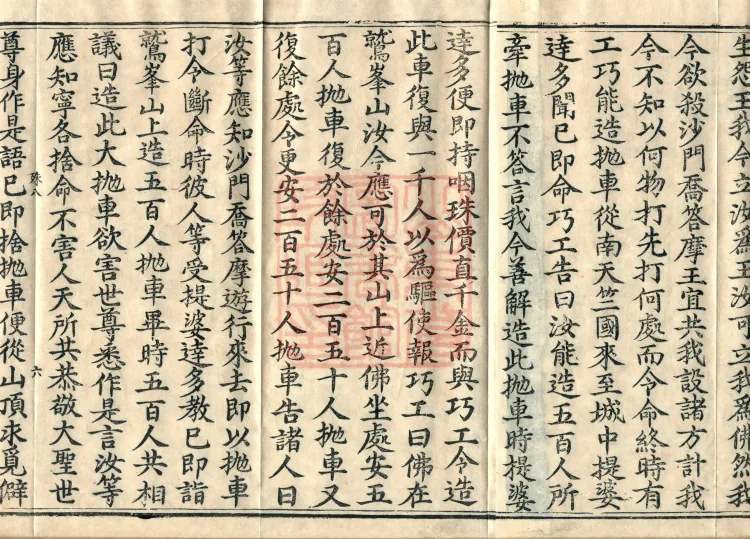 生怨王我今立汝爲王汝可立我爲佛然我
今欲殺沙門喬答摩王宜共我設諸方計我
今不知以何物打先打何處而令命終時有
工巧能造抛車從南天竺國來至城中提婆
達多聞已即命巧工告曰汝能造五百人所
牽抛車不答言我今善解造此抛車時提婆
達多便即持咽珠價直千金而與巧工令造
此車復與一千人以爲驅使報巧工曰佛在
鷲峯山汝今應可於其山上近佛坐處安五
百人抛車復於餘處安二百五十人抛車又
復餘處令更安二百五十人抛車告諸人曰
汝等應知沙門喬答摩遊行來去即以抛車
打令斷命時彼人等受提婆達多教已即詣
鷲峯山上造五百人抛車畢時五百人共相
議曰造此大抛車欲害世尊悉作是言汝等
應知寧各捨命不害人天所共恭敬大聖世
尊身作是語已即捨抛車便從山頂求覓僻
六